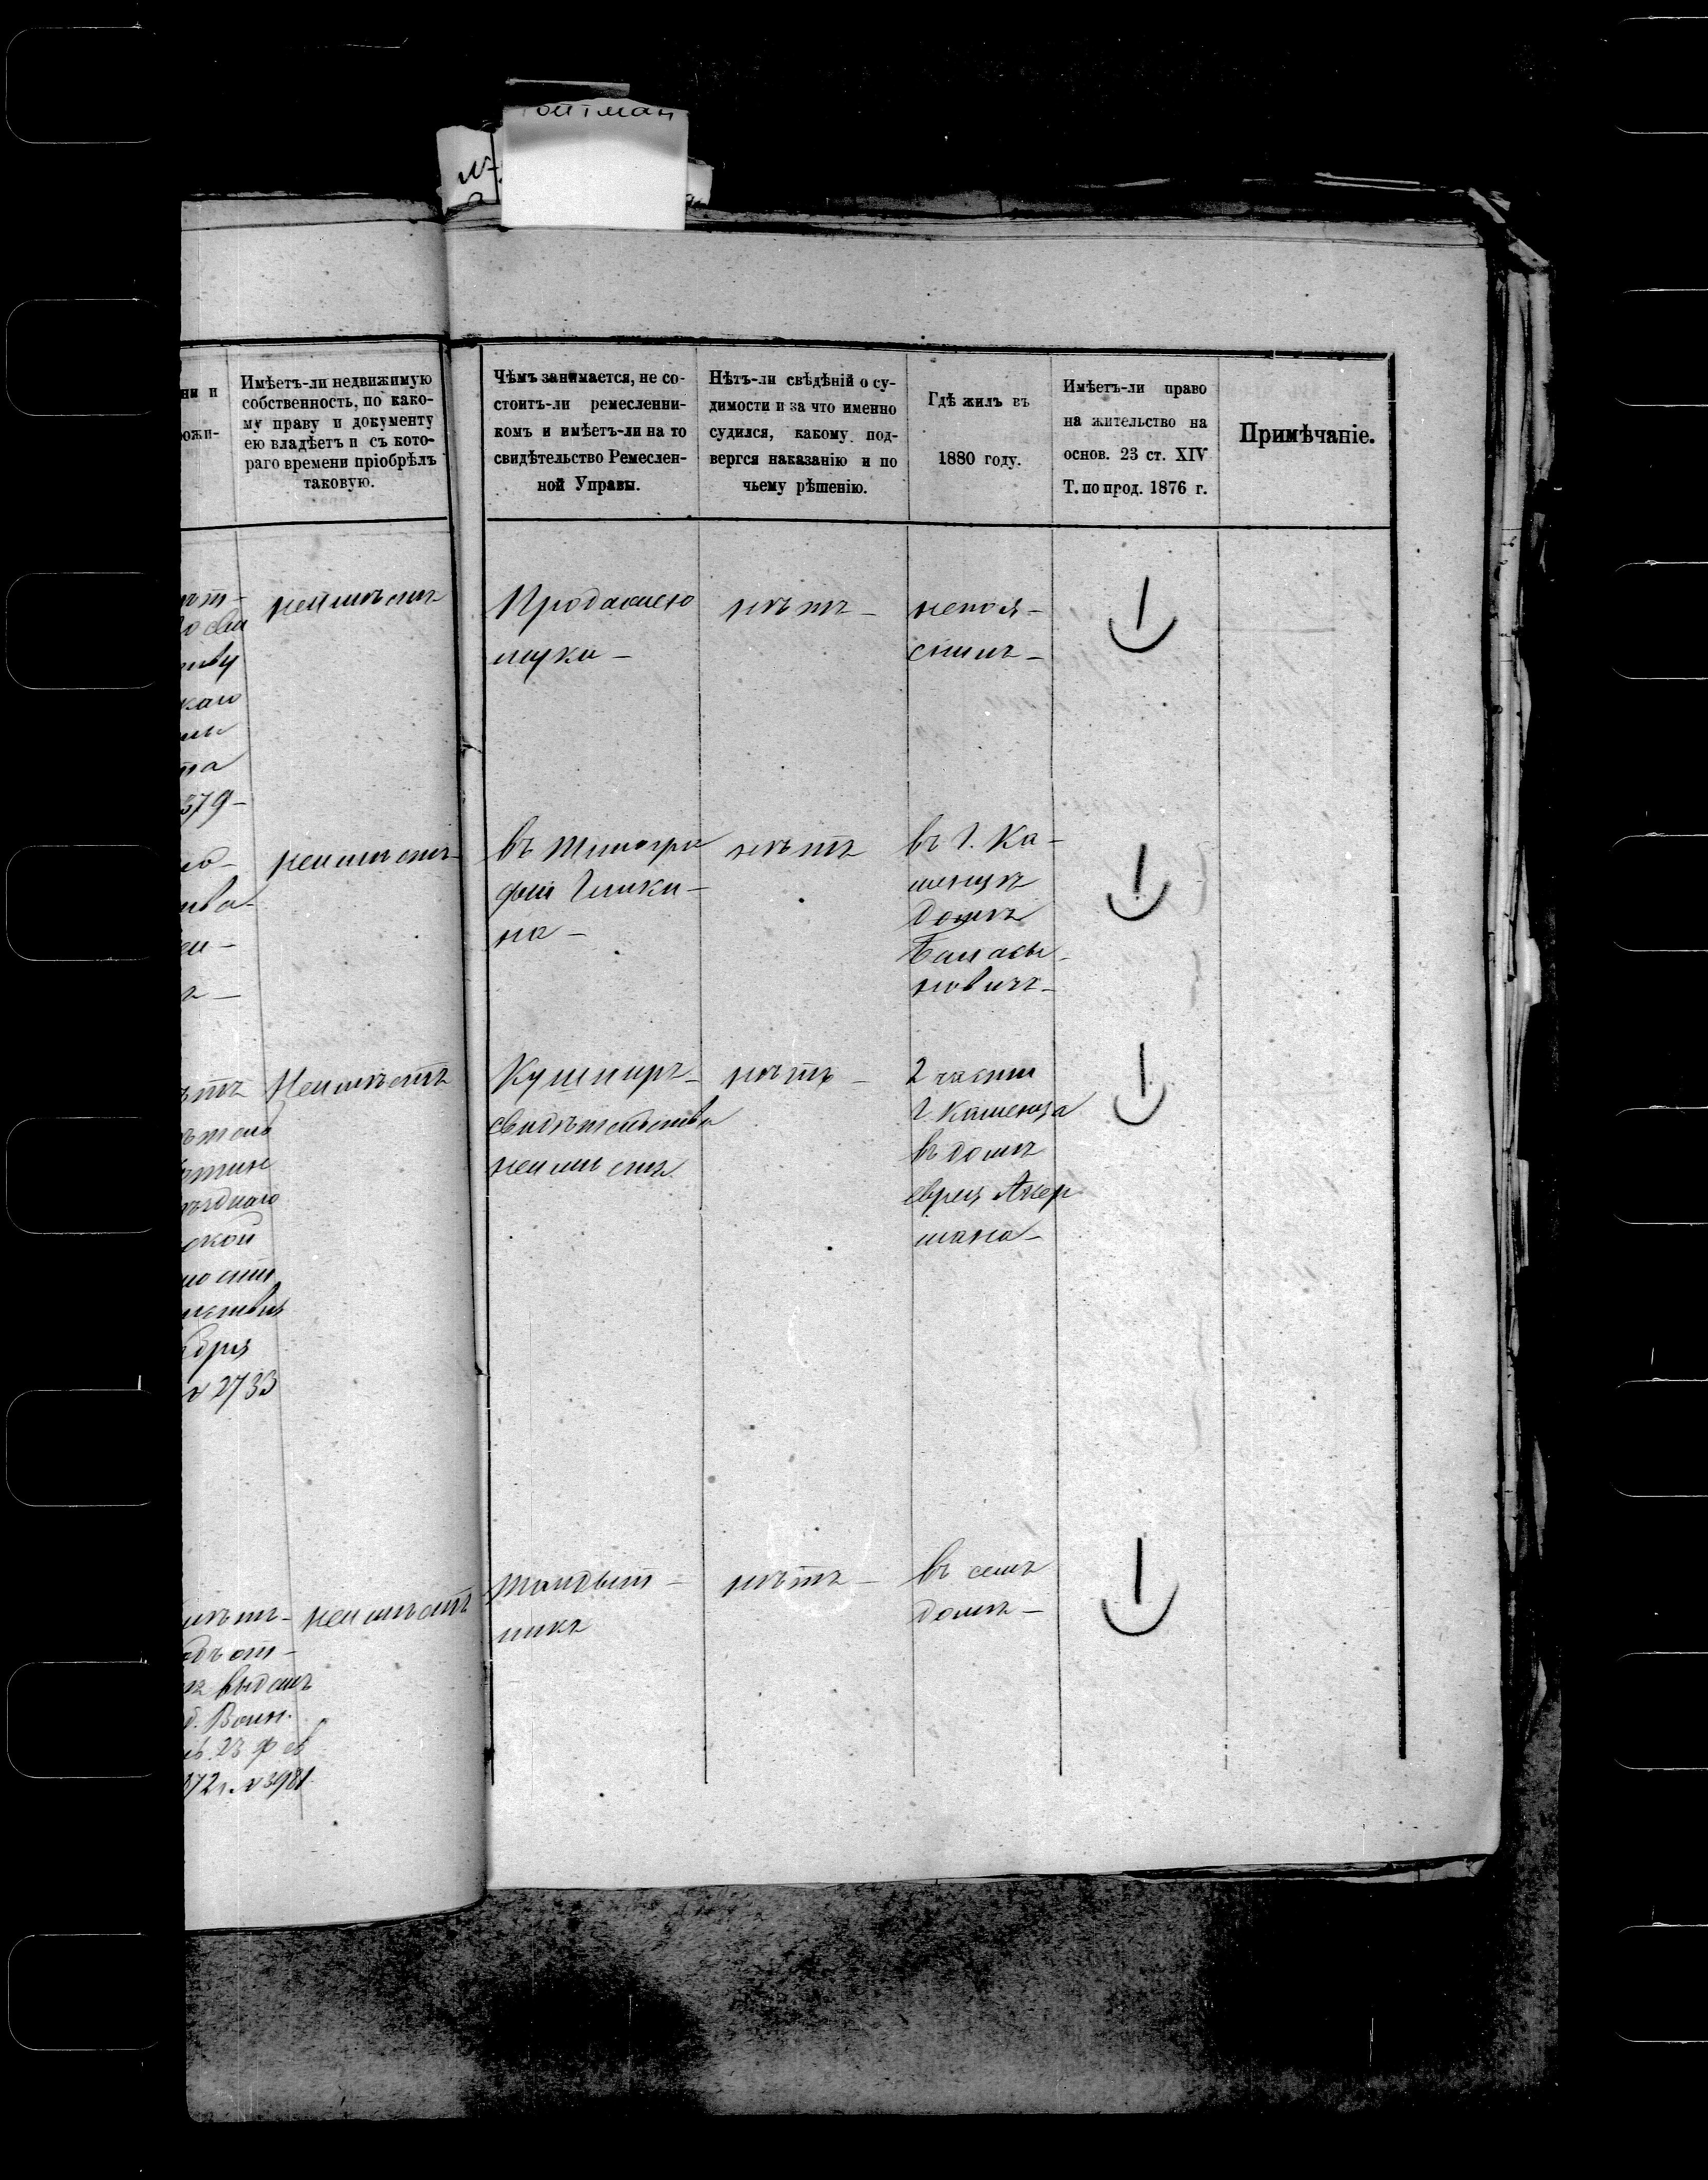 ойтман
ни и
ожи-
Имѣетъ-ли недвижимую
собственность, по како-
му праву и документу
ею владѣетъ и съ кото-
раго времени пріобрѣлъ
таковую.
Чѣмъ занимается, не со-
стоитъ-ли ремесленни-
комъ и имѣетъ-ли на то
свидѣтельство Ремеслен-
ной Управы.
Нѣтъ-ли свѣдѣній о су-
димости и за что именно
судился, какому под-
вергся наказанію и по
чьему рѣшенію.
Гдѣ жилъ въ
1880 году.
Имѣетъ-ли право
на жительство на
основ. 23 ст. XIV
Т. по прод. 1876 г.
Примѣчаніе.
каго
та
379-
неимѣетъ
Продажею
муки-
нѣтъ-
непоя-
снилъ-
неимѣетъ-
въ типогра
фіи Глики-
на-
нѣтъ
въ г. Ка-
менцѣ
домъ
новичъ-
ѣтъ
ѣтель
ѣзднаго
ской
ности
бря
№ 2733
Неимѣетъ
Кушниръ-
свидѣтельства
неимѣетъ
нѣтъ-
2 части
г. Каменца
въ домѣ
еврея Акер
мана-
имѣт-
отъ
выдан
д. Воин.
23 фев
872 г. № 3981
неимѣетъ
тандыт-
никъ
нѣтъ-
въ семъ
домѣ-